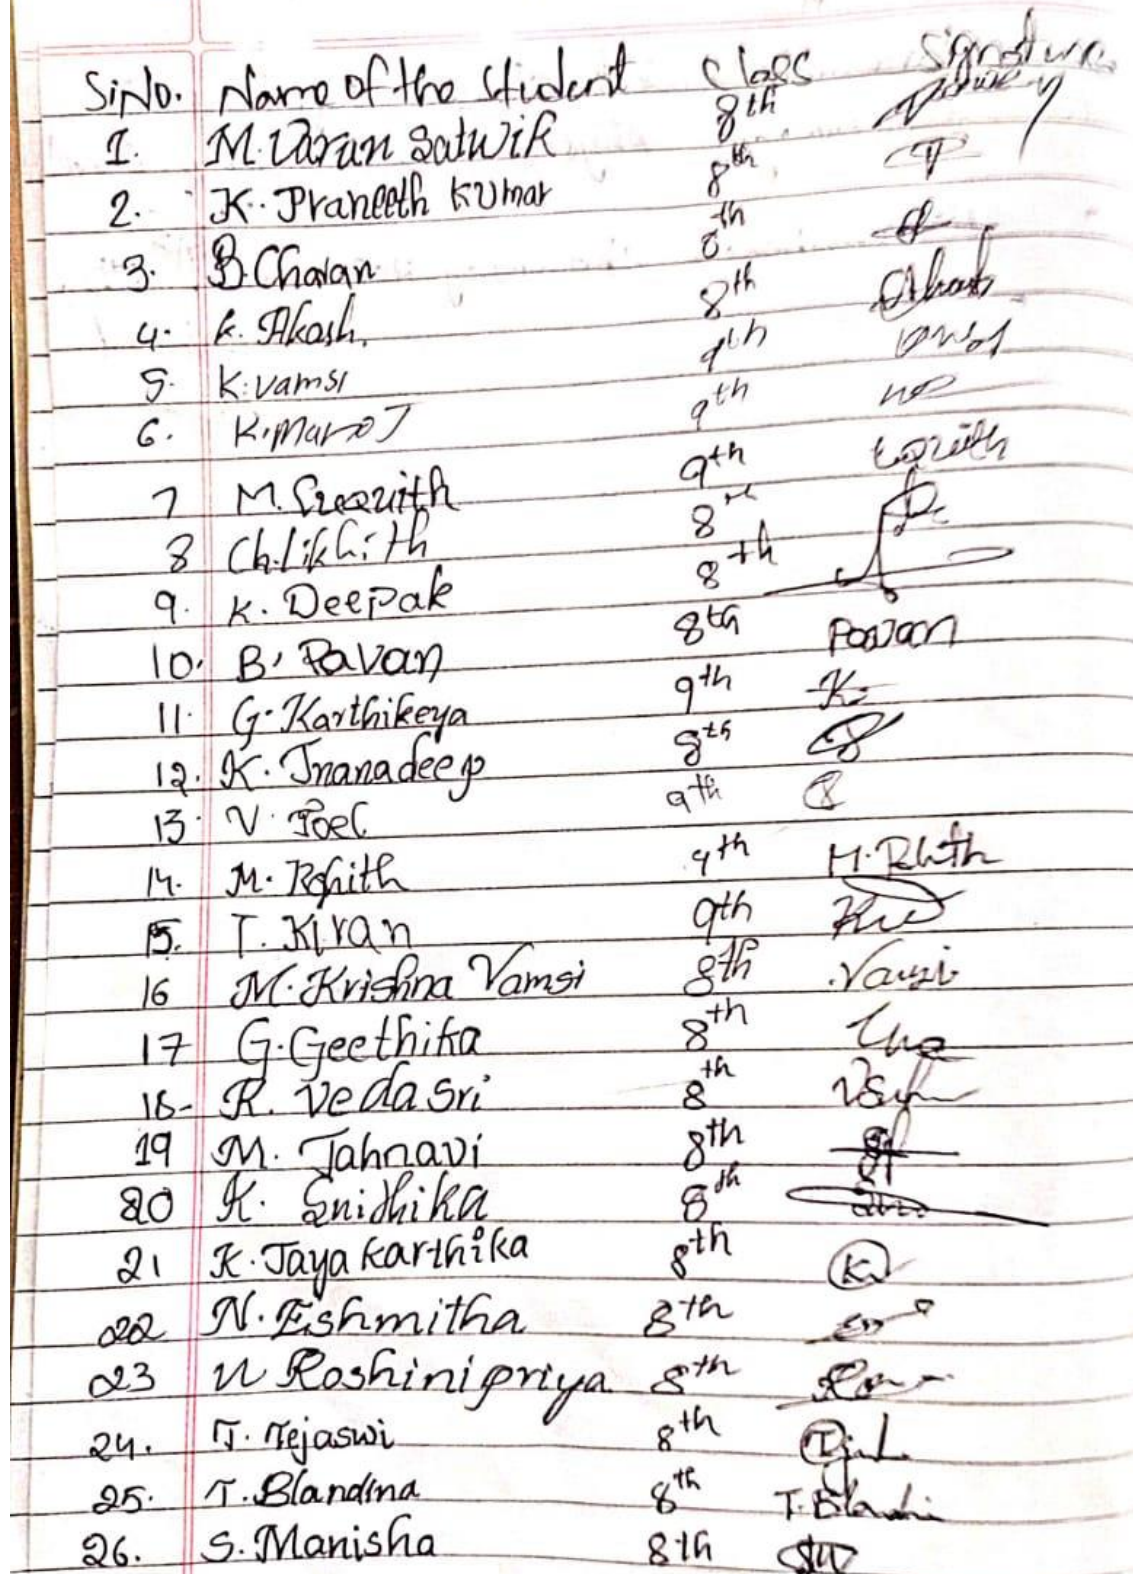 Si No. Name of the Student Class Signature
1. M. Varun Satwik 8th
2. K. Praneeth Kumar 8th
3. B. Charan 8th
4. K. Akash. 8th Akash
5. K. Vamsi 9th
6. K. Manoj 9th
7 M. 9th
8 Ch. Likhith 8th
9. K. Deepak 8th
10. B. Pavan 8th Pavan
11. G. Karthikeya 9th K
12. K. Jnanadeep 8th
13. V. Joel 9th
14. M. Rohith 9th M. Rhith
15. T. Kiran 9th
16 M. Krishna Vamsi 8th Vamsi
17 G. Geethika 8th
18- R. Veda Sri 8th
19 M. Jahnavi 8th
20 K. Snidhika 8th
21 K. Jaya Karthika 8th K
22 N. Eshmitha 8th
23 U Roshini priya 8th
24. T. Tejaswi 8th
25. T. Blandina 8th
26. S. Manisha 8th